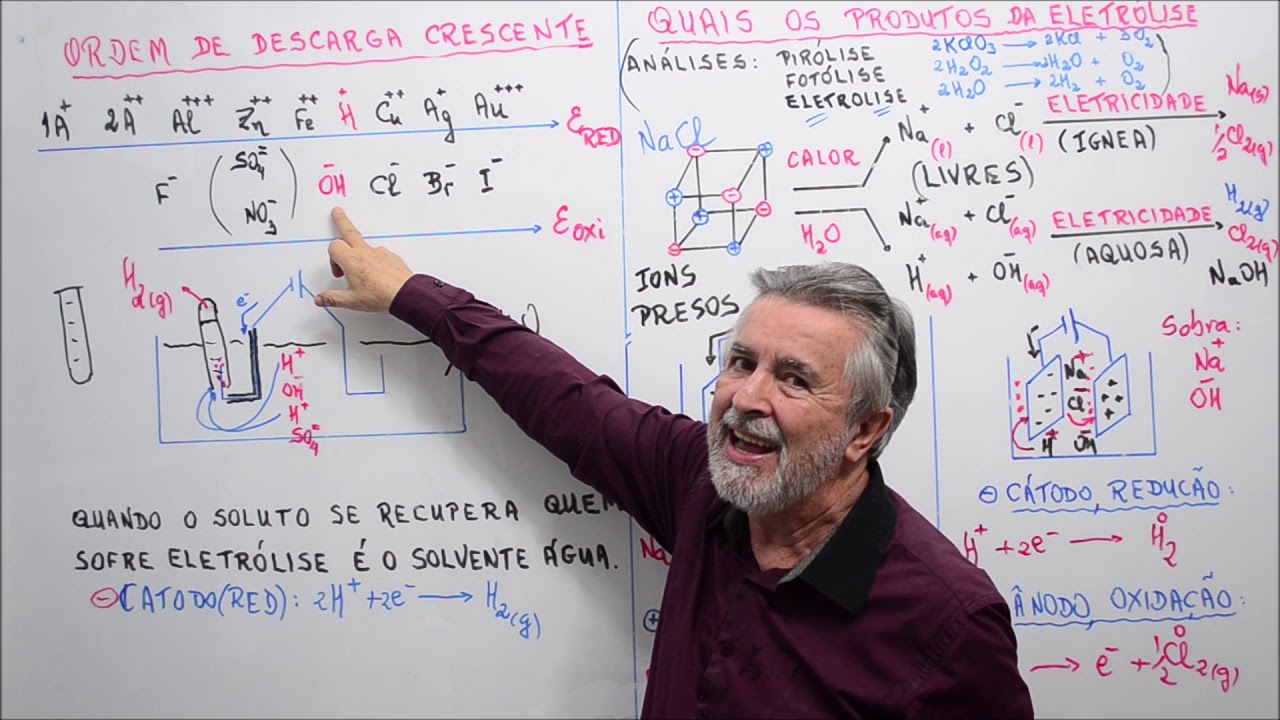 ORDEM DE DESCARGA CRESCENTE
1A⁺ 2A⁺⁺ Al⁺⁺⁺ Zn⁺⁺ Fe⁺⁺ H⁺ Cu⁺⁺ Ag⁺ Au⁺⁺⁺
E RED
F⁻ (SO₄⁼ NO₃⁻) OH⁻ Cl⁻ Br⁻ I⁻
E oxi
H₂(g)
e⁻
H⁺
OH⁻
H⁺
SO₄⁼
QUANDO O SOLUTO SE RECUPERA QUEM
SOFRE ELETRÓLISE É O SOLVENTE ÁGUA.
⊖ CATODO(RED): 2H⁺ + 2e⁻ → H₂(g)
QUAIS OS PRODUTOS DA ELETRÓLISE
(ANÁLISES: PIRÓLISE 2KClO₃ → 2KCl + 3O₂
FOTÓLISE 2H₂O₂ → 2H₂O + O₂
ELETROLISE 2H₂O → 2H₂ + O₂)
NaCl
CALOR
Na⁺(l) + Cl⁻(l)
(LIVRES)
ELETRICIDADE
(IGNEA)
Na(s)
½Cl₂(g)
H₂O
Na⁺(aq) + Cl⁻(aq)
H⁺(aq) + OH⁻(aq)
ELETRICIDADE
(AQUOSA)
H₂(g)
Cl₂(g)
NaOH
IONS
PRESOS
Na⁺
Cl⁻
H⁺ OH⁻
Sobra:
Na⁺
OH⁻
⊖ CÁTODO REDUCÃO:
H⁺ + 2e⁻ → H₂⁰
ÂNODO OXIDAÇÃO:
→ e⁻ + ½Cl₂⁰(g)